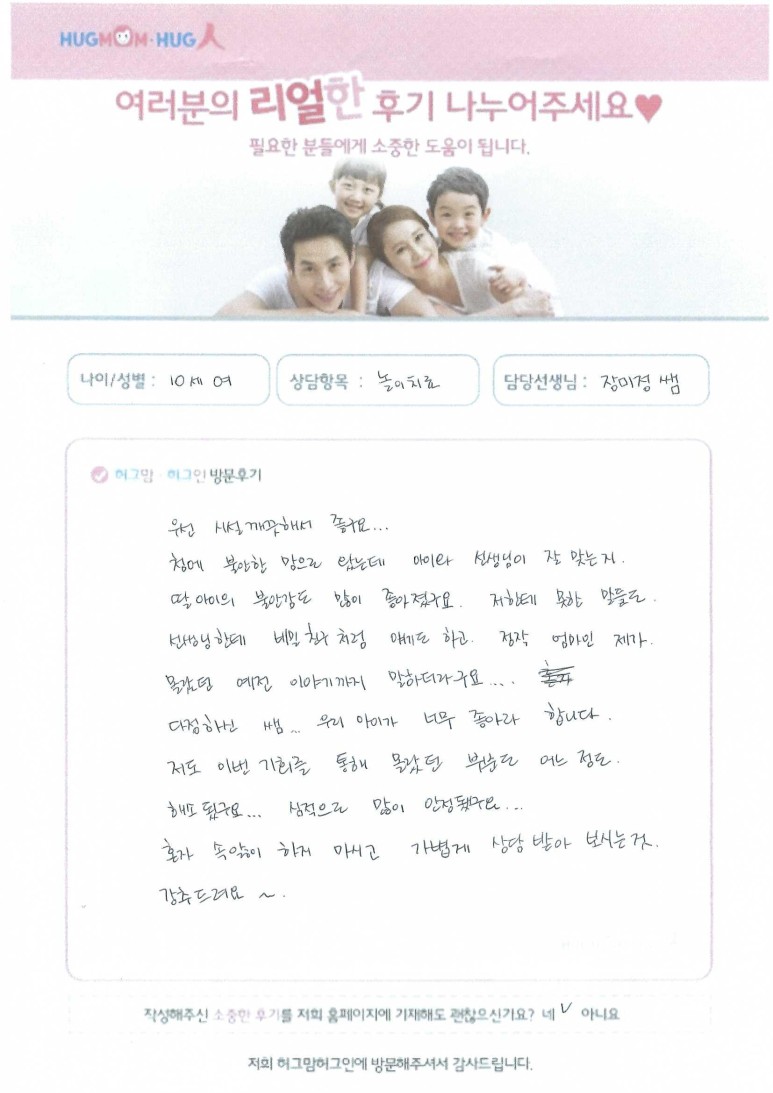 HUGMOM·HUG人
여러분의 리얼한 후기 나누어주세요♥
필요한 분들에게 소중한 도움이 됩니다.
나이/성별 : 10세 여 상담항목 : 놀이치료 담당선생님 : 장미정 쌤
허그맘·허그인 방문후기
우선 시설 깨끗해서 좋구요...
첨에 불안한 맘으로 왔는데 아이와 선생님이 잘 맞는지.
딸아이의 불안감도 많이 좋아졌구요. 저한테 못한 말들도.
선생님한테 비밀친구처럼 얘기도 하고. 정작 엄마인 제가.
몰랐던 예전 이야기까지 말하더라구요....
다정하신 쌤... 우리 아이가 너무 좋아라 합니다.
저도 이번 기회를 통해 몰랐던 부분도 어느 정도.
해소됬구요... 심적으로 많이 안정됬구요...
혼자 속앓이 하지 마시고 가볍게 상담 받아 보시는것.
강추드려요 ~.
작성해주신 소중한 후기를 저희 홈페이지에 기재해도 괜찮으신가요? 네 ✓ 아니요
저희 허그맘허그인에 방문해주셔서 감사드립니다.